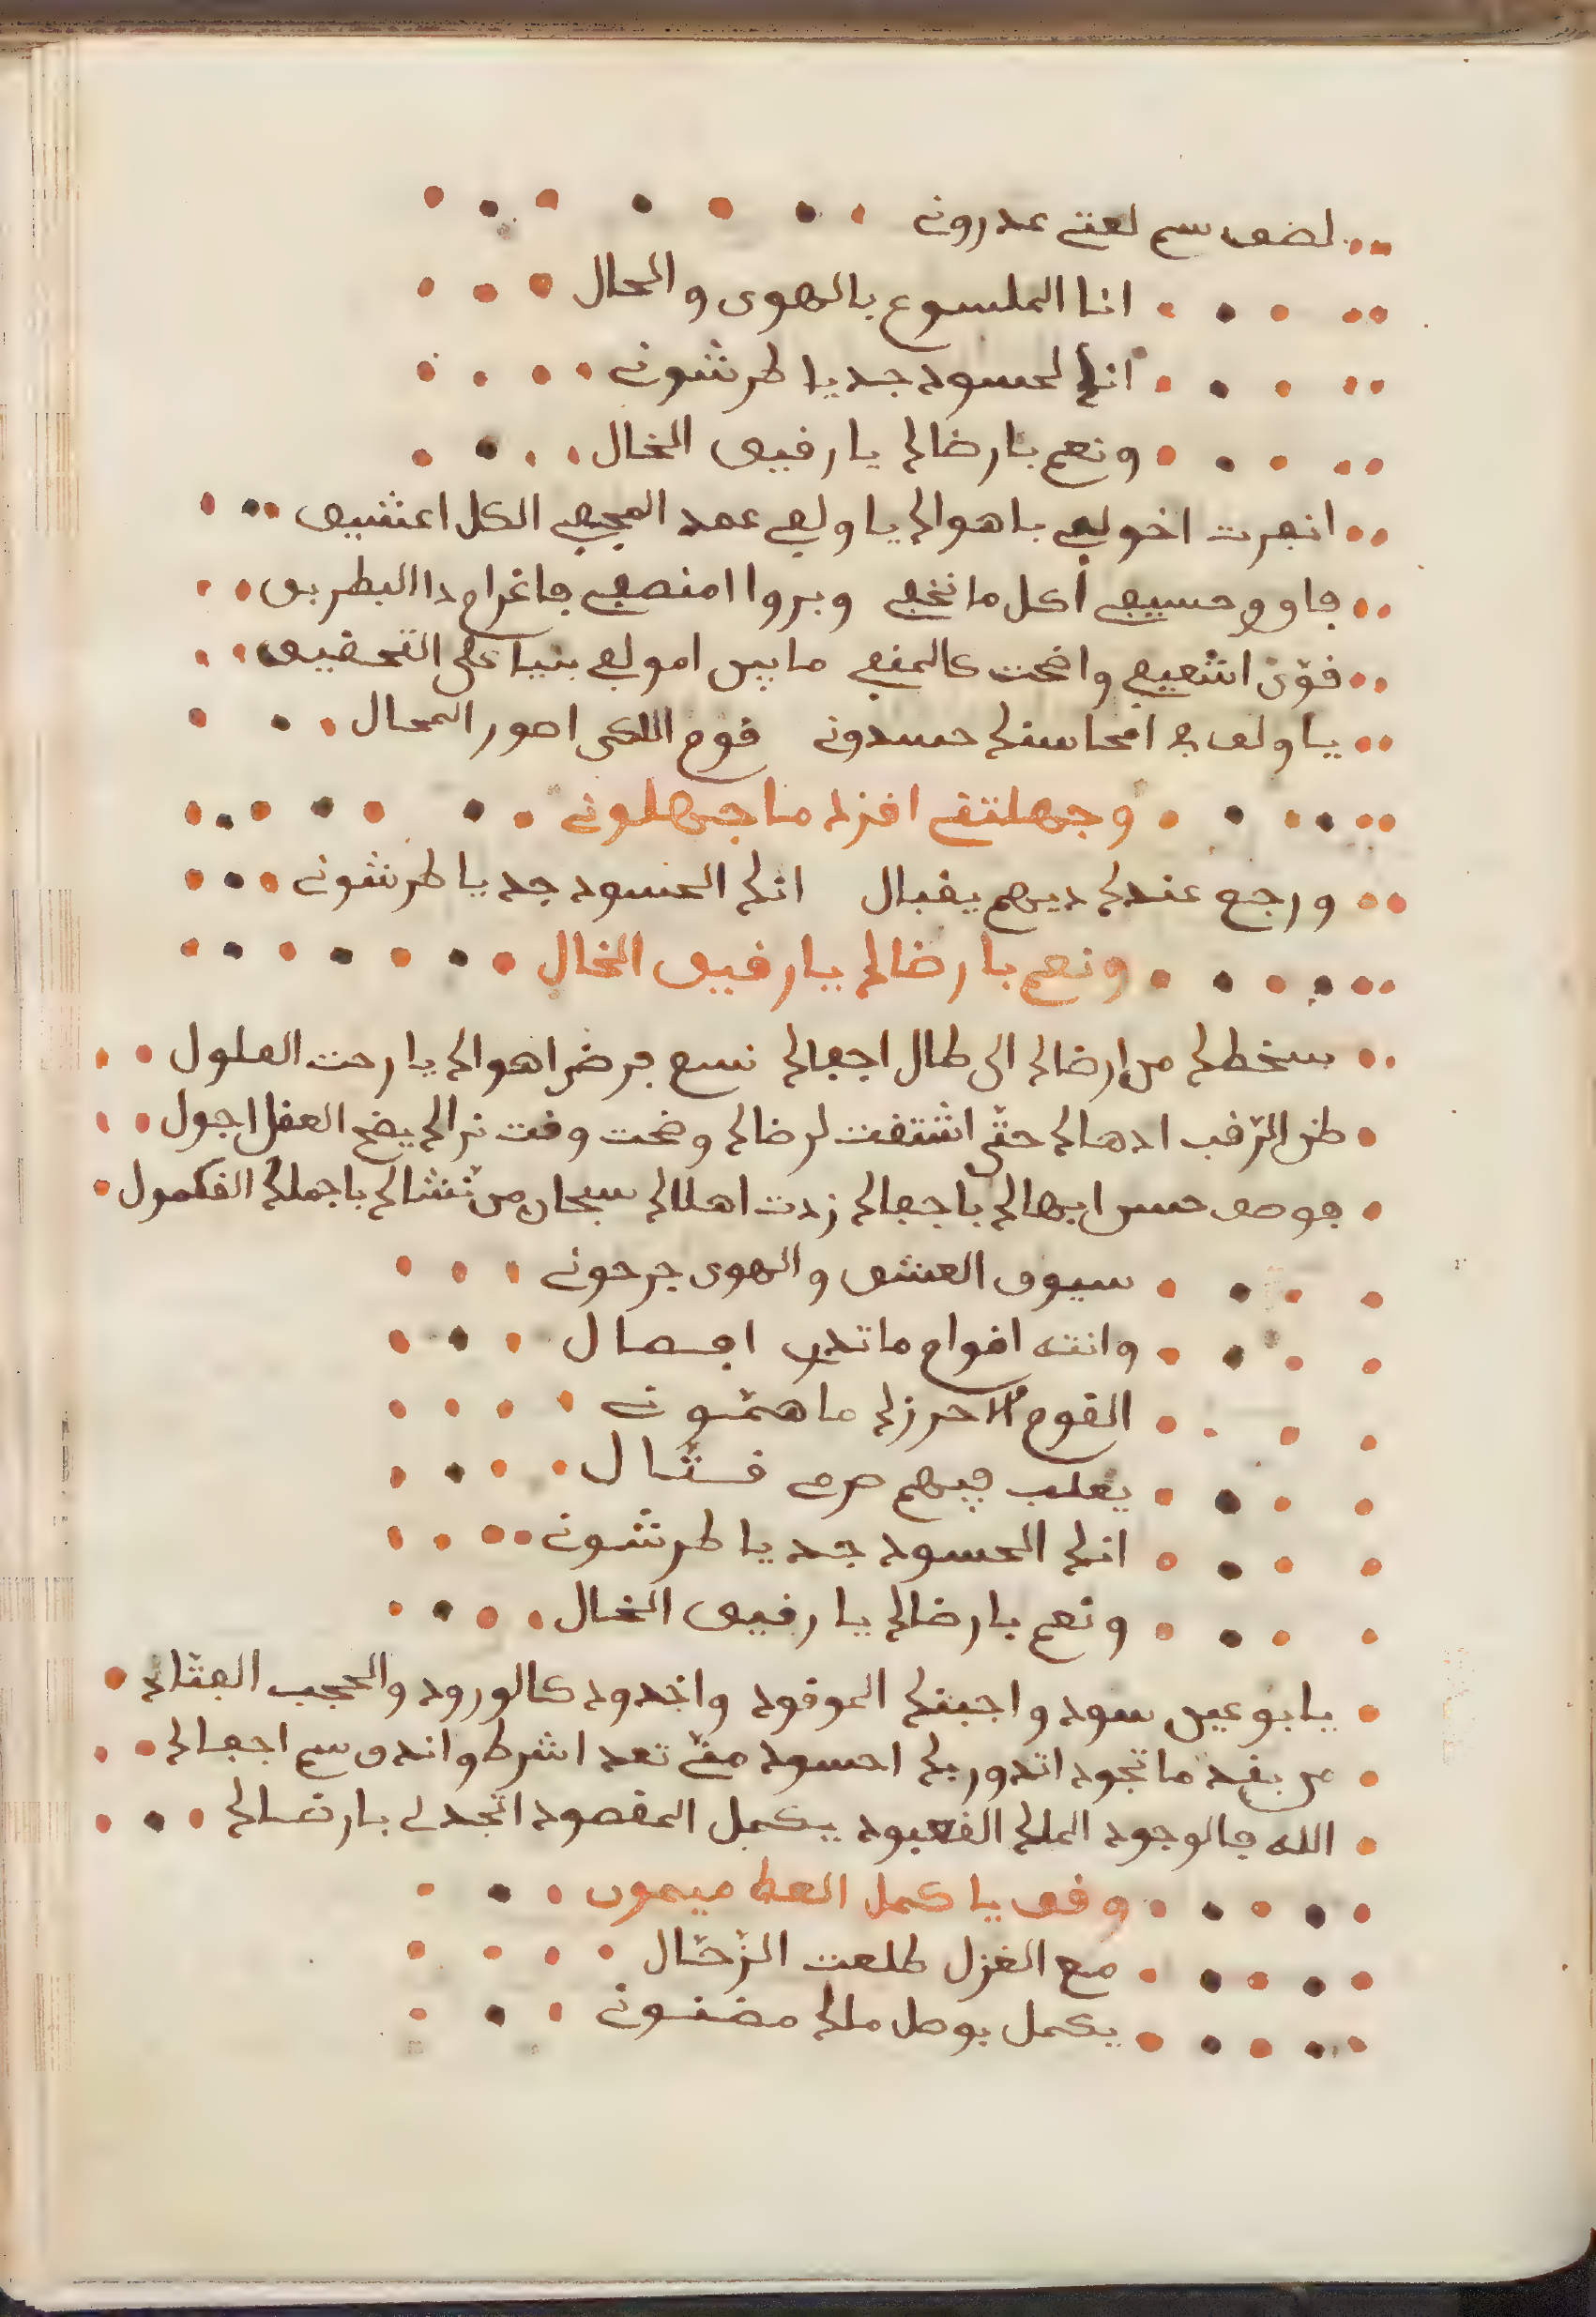 لضى سم لعتي عدروني
انا الملسوع بالهوى والحال
انك لحسود جد يا طرشوني
ونعم بارضاك يا رفيق الخال
انفرت اخولفي باهواك يا ولفي عهد الفجفي الكل اعشيق
جاو وحسيفي اكل ما نخفي وبروا امنصفي جاغرام دا البطريق
فوق اشعيفي واضحت كالمنفي مابين امولفي بنيا على التحقيق
يا ولف في امحاسنك حسدوني فوم اللكى اصور المحال
وجهلتني افزك ما جهلوني
ورجع عندك ديهم يقبال انك الحسود جد يا طرشوني
ونعم بارضاك يا رفيق الخال
سخطك من ارضاك الى طال اجفاك نسع فرض اهواك يا رحت العلول
طن الرقب ادهاك حتى اشتقت لرضاك وضحت وقت نراك يضح العقل اجول
فوصف حسن ابهاك باجفاك زدت اهلاك سبحان من نشاك يا جملة الفكمول
سيوف العشق والهوى جرحوني
وانته اقوام ما تدري افصال
القوم الاحرزك ما همتوني
يغلب فيهم صرمي قتال
انك الحسود جد يا طرشوني
ونعم بارضاك يا رفيق الخال
يا بو عين سود واجبنك الموقود واخدود كالورود والحجب الفتاك
من بفد ما تجود اتدور بك احسود متى تعد اشرط واندوسم اجفاك
الله فالوجود الملك الفعبود يكمل المقصود اتجدلي بارضاك
وفى يا كمل العطا ميمون
مع الغزل طلعت الزحال
يكمل بوصل ملك مضنوني